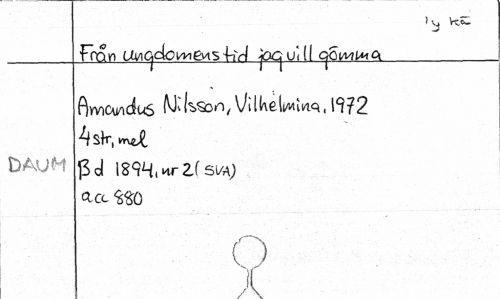 'y kä
Från ungdomens tid jag vill gömma
Amandus Nilsson, Vilhelmina, 1972
4 str, mel
DAUM
Bd 1894, nr 2 (SVA)
acc 880